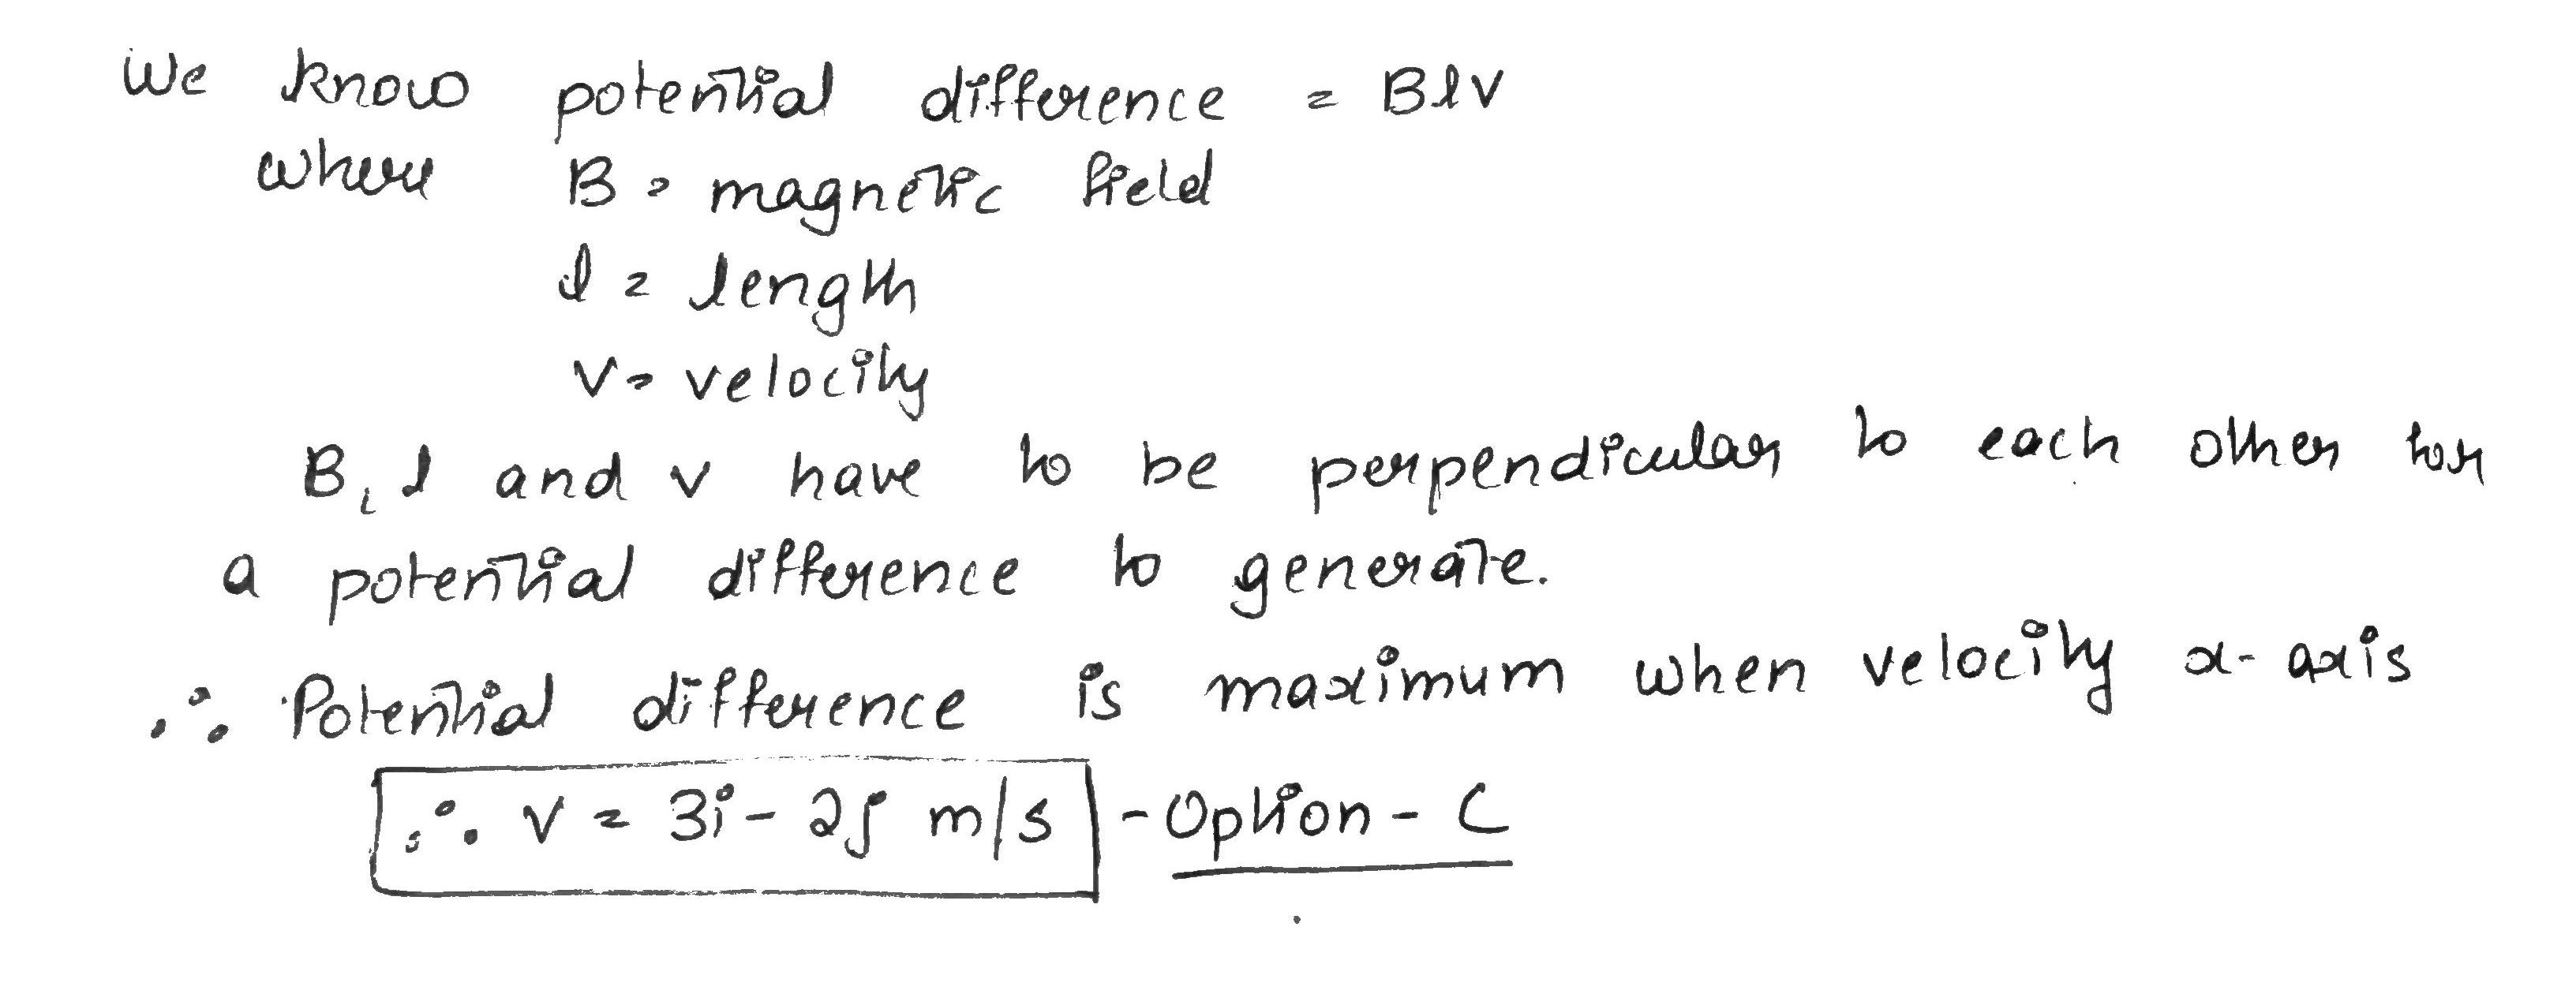 We know potential difference = Blv
where B = magnetic field
l = length
v = velocity
B, l and v have to be perpendicular to each other for
a potential difference to generate.
∴ Potential difference is maximum when velocity x-axis
∴ v = 3i - 2j m/s - Option - C